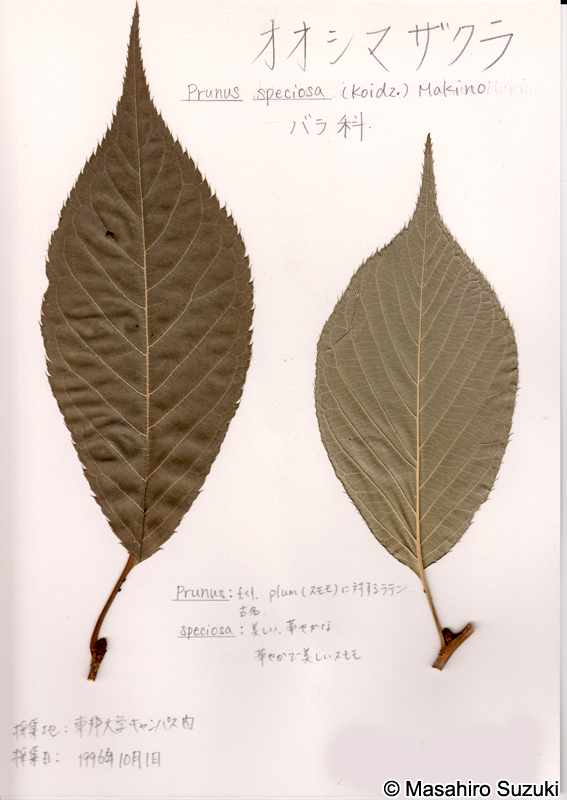 オオシマザクラ
Prunus speciosa (Koidz.) Makino
バラ科
Prunus: plum (スモモ) に対するラテン
古名
speciosa: 美しい、華やかな
華やかで美しいスモモ
採集地: 東邦大学キャンパス内
採集日: 1996年10月1日
© Masahiro Suzuki